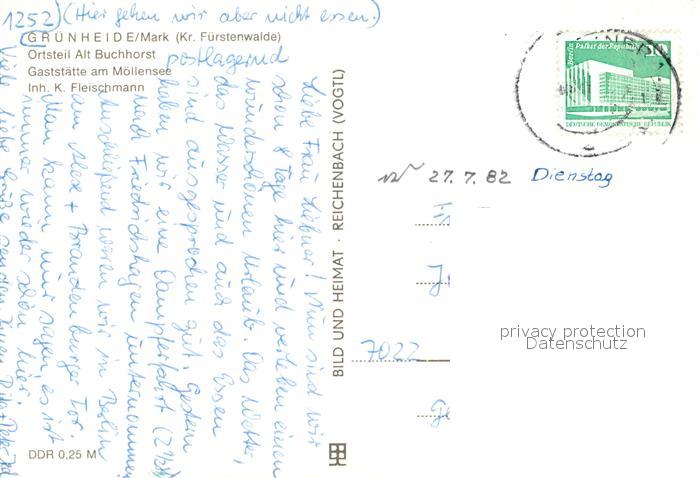 1252) (Hier gehen wir aber nicht essen.)
GRÜNHEIDE/Mark (Kr. Fürstenwalde)
Ortsteil Alt Buchhorst
postlagernd
Gaststätte am Möllensee
Inh. K. Fleischmann
Liebe Frau Hübner! Nun sind wir
schon 8 Tage hier und verleben einen
wunderschönen Urlaub. Das Wetter,
das Wasser und auch das Essen
sind ausgesprochen gut. Gestern
haben wir eine Dampferfahrt (2 Std.)
nach Friedrichshagen unternommen.
Anschließend waren wir in Berlin
am Alex + Brandenburger Tor.
Man kann nur sagen, es ist
immer wieder schön hier.
Viele liebe Grüße senden Ihnen
DDR 0,25 M
BILD UND HEIMAT · REICHENBACH (VOGTL)
Berlin Palast der Republik
10
DEUTSCHE DEMOKRATISCHE REPUBLIK
27.7.82 Dienstag
7022
privacy protection
Datenschutz